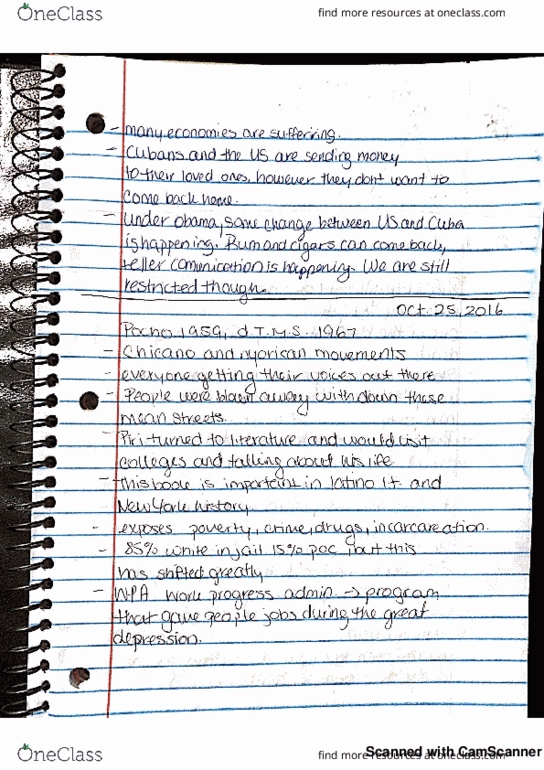 OneClass
find more resources at oneclass.com
- many economies are sufferring.
- Cubans and the US are sending money
to their loved ones, however they don't want to
come back home.
- Under Obama, some change between US and Cuba
is happening. Rum and cigars can come back,
comunication is happening. We are still
restricted though.
Oct. 25, 2016
Pocho 1959, d T.M.S. 1967
- Chicano and nyorican movements
- everyone getting their voices out there
- People were blown away with down these
mean streets.
- Piri turned to literature and would visit
colleges and talking about his life
- this book is important in latino lit and
New York history
- exposes poverty, crime, drugs, incarcareation.
- 85% white in jail 15% poc, but this
has shifted greatly
- WPA work progress admin → program
that gave people jobs during the great
depression.
OneClass
find more resources at oneclass.com
Scanned with CamScanner